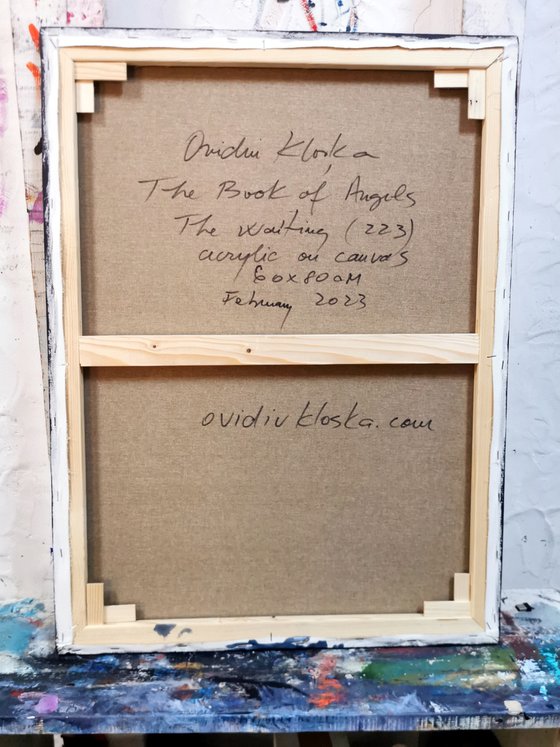 Ovidiu Kloska
The Book of Angels
The waiting (223)
acrylic on canvas
60x80cm
February 2023
ovidiukloska.com